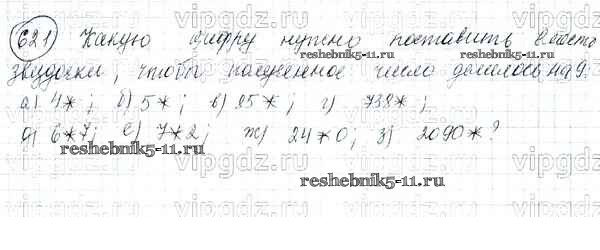 621 Какую цифру нужно поставить вместо
звёздочки, чтобы полученное число делилось на 9:
а) 4*; б) 5*; в) 25*; г) 738*;
д) 6*7; е) 7*2; ж) 24*0; з) 2090*?
reshebnik5-11.ru
reshebnik5-11.ru
reshebnik5-11.ru
vipgdz.ru